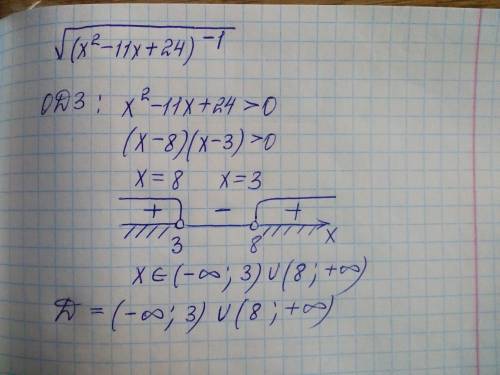 √(x²-11x+24)⁻¹
ОДЗ: x²-11x+24>0
(x-8)(x-3)>0
x=8 x=3
+ - +
3 8 x
x∈(-∞; 3)∪(8; +∞)
D=(-∞; 3)∪(8; +∞)